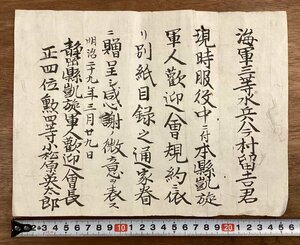 海軍三等水兵今村留吉君
現時服役中ニ付本縣凱旋
軍人歡迎會規約ニ依
リ別紙目録之通家眷
ニ贈呈シ感謝ノ微意ヲ表ス
明治二十九年三月廿九日
静岡縣凱旋軍人歡迎會長
正四位勲四等小松原英太郎
10
20